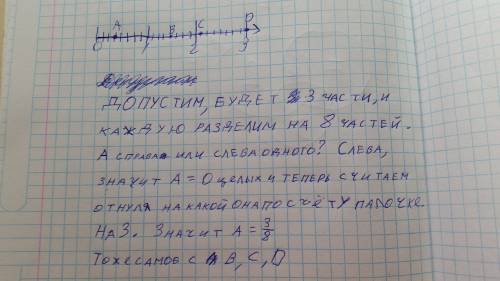 A B C D
0 1 2 3
ДОПУСТИМ, БУДЕТ 3 ЧАСТИ, И
КАЖДУЮ РАЗДЕЛИМ НА 8 ЧАСТЕЙ.
А СПРАВА ИЛИ СЛЕВА ОДНОГО? СЛЕВА,
ЗНАЧИТ А = 0 ЦЕЛЫХ И ТЕПЕРЬ СЧИТАЕМ
ОТ НУЛЯ НА КАКОЙ ОНА ПО СЧЁТУ ПАЛОЧКЕ
НА 3. ЗНАЧИТ А = 3/8
ТОЖЕ САМОЕ С B, C, D